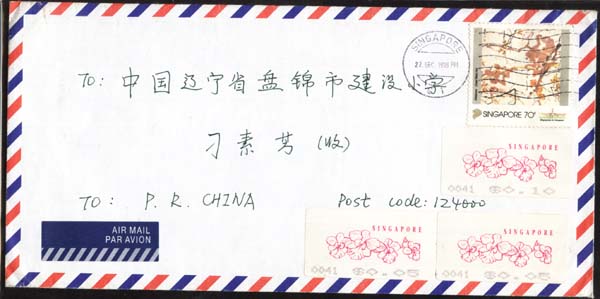 SINGAPORE
22 DEC 1998 PM
SINGAPORE 70¢
TO: 中国辽宁省盘锦市建设小学
刁素芳 (收)
TO: P. R. CHINA Post code: 124000
SINGAPORE
0041 $0.10
SINGAPORE
0041 $0.05
SINGAPORE
0041 $0.05
AIR MAIL
PAR AVION